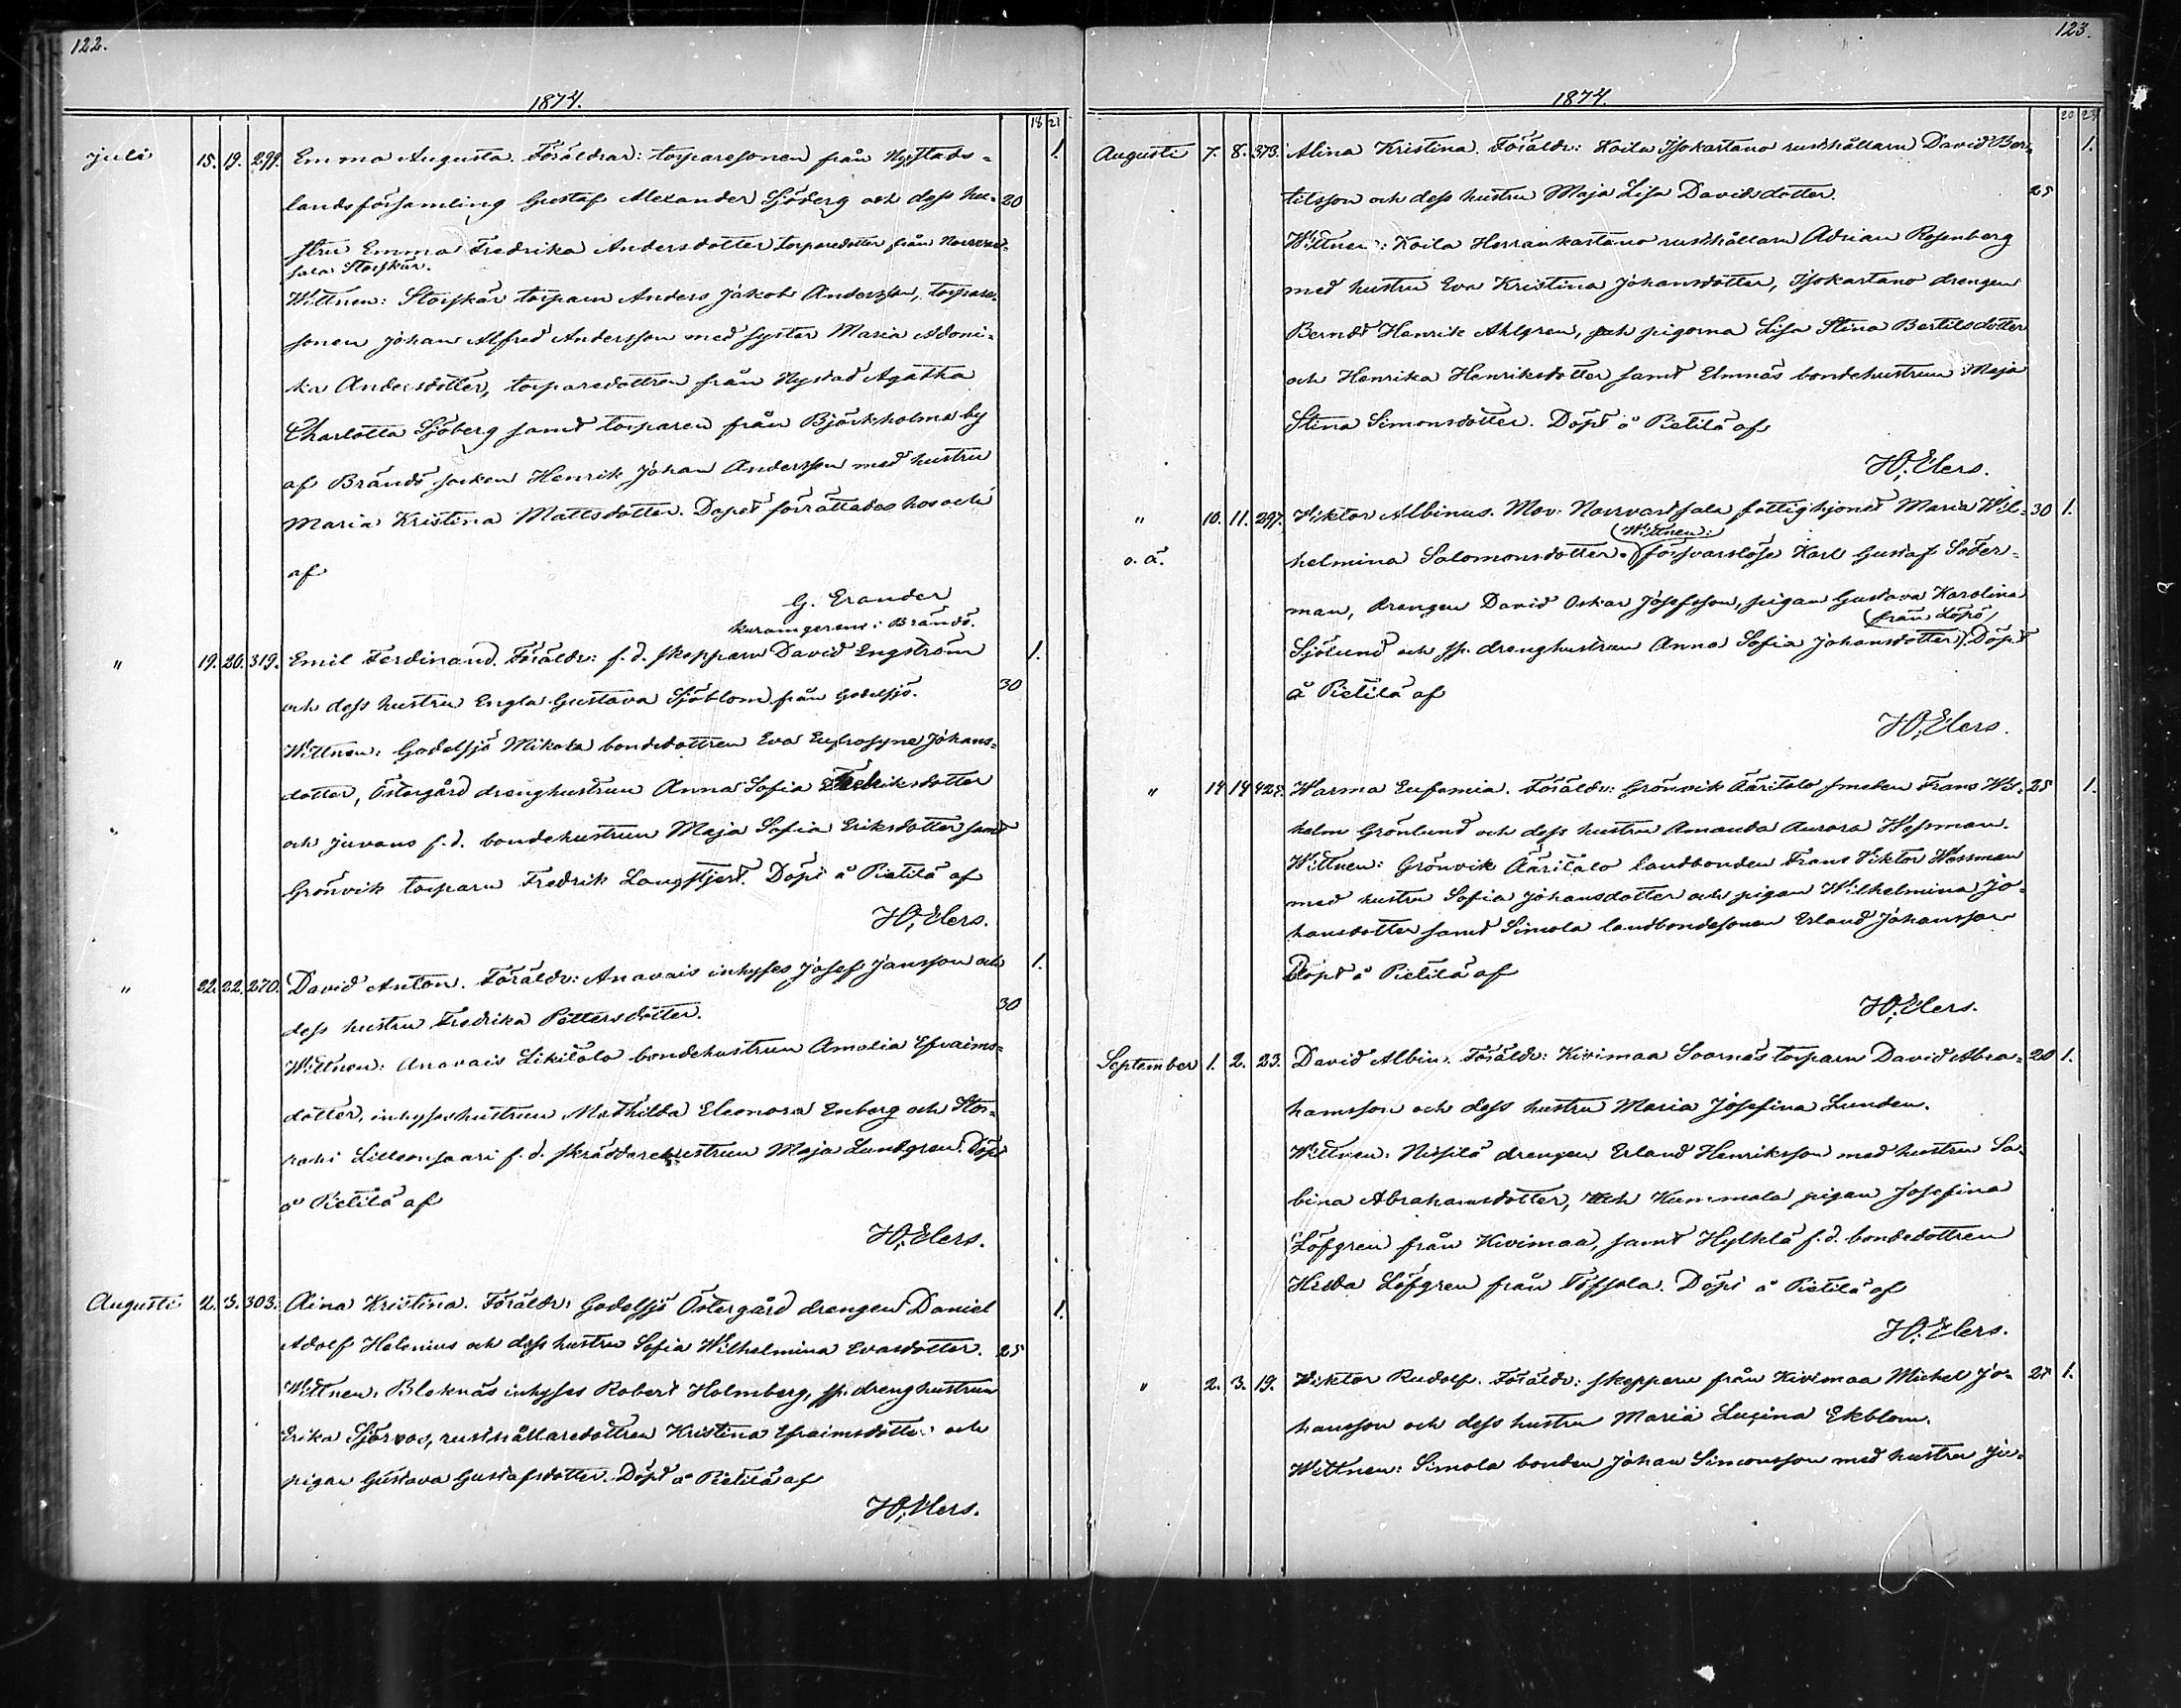 122.
1874.
18 21
Juli 15. 19. 299. Emma Augusta. Föräldrar: torparesonen från Nystads- 1.
landsförsamling Gustaf Alexander Sjöberg och dess hu- 20
stru Emma Fredrika Andersdotter torparedotter från Norrvart-
sala Storskär.
Wittnen: Storskär torparn Anders Jakob Andersson, torpare-
sonen Johan Alfred Andersson med syster Maria Adoni-
ka Andersdotter, torparedottren från Nystad Agatha
Charlotta Sjöberg samt torparen från Björkholma by
af Brändö socken Henrik Johan Andersson med hustru
Maria Kristina Mattsdotter. Dopet förrättades hos och
af
G. Erander
kuramgerens i Brändö.
" 19. 20. 319. Emil Ferdinand. Föräldr: f.d. skepparn David Engström 1.
och dess hustru Engla Gustava Sjöblom från Godelsjö. 30
Wittnen: Godelsjö Mikola bondedottren Eva Eufrosyne Johans-
dotter, Östergård drenghustrun Anna Sofia Fredriksdotter
och Juvans f.d. bondehustrun Maja Sofia Eriksdotter samt
Grönvik torparn Fredrik Langstjert. Döpt å Pietilä af
H. Elers.
" 22. 22. 270. David Anton. Föräldr: Anavais inhyses Josef Jansson och 1.
dess hustru Fredrika Pettersdotter. 30
Wittnen: Anavais Likitalo bondehustrun Amalia Efraims-
dotter, inhyseshustrun Mathilda Eleonora Enberg och Stor-
rahi Lilleonsaari f.d. skräddarehustrun Maja Lundgren. Döpt
å Pietilä af
H. Elers.
Augusti 2. 3. 303. Aina Kristina. Föräldr: Godelsjö Östergård drengen Daniel 1.
Adolf Helenius och dess hustru Sofia Wilhelmina Evasdotter. 25
Wittnen: Bleknäs inhyses Robert Holmberg, sp. drenghustrun
Erika Sjörvos, rusthållaredottren Kristina Efraimsdotter och
pigan Gustava Gustafsdotter. Döpt å Pietilä af
H. Elers.
123.
1874.
20 23
Augusti 7. 8. 373. Alina Kristina. Föräldr: Koila Isokartano rusthållarn David Ber- 1.
tilsson och dess hustru Maja Lisa Davidsdotter. 25
Wittnen: Koila Herrankartano rusthållarn Adrian Rosenberg
med hustru Eva Kristina Johansdotter, Isokartano drengen
Berndt Henrik Ahlgren, och pigorna Lisa Stina Bertilsdotter
och Henrika Henriksdotter samt Elmnäs bondehustrun Maja
Stina Simonsdotter. Döpt å Pietilä af
H. Elers.
" 10. 11. 297. Wiktor Albinus. Mov. Norrvartsala fattighjonet Maria Wil- 30 1.
(Wittnen:
o.ä. helmina Salomonsdotter. försvarslöse Karl Gustaf Söder-
man, drengen David Oskar Josefsson, pigan Gustava Karolina
(från Löpö)
Sjölund och sp. drenghustrun Anna Sofia Johansdotter. Döpt
å Pietilä af
H. Elers.
" 14 14 427. Warma Eufemia. Föräldr: Grönvik Ääritalo smeden Frans Wil- 25 1.
helm Grönlund och dess hustru Amanda Aurora Wessman.
Wittnen: Grönvik Ääritalo landbonden Frans Viktor Wessman
med hustru Sofia Johansdotter och pigan Wilhelmina Jo-
hansdotter samt Simola landbondesonen Erland Johansson
Döpt å Pietilä af
H. Elers.
September 1. 2. 23. David Albin. Föräldr: Kivimaa Soornäs torparn David Abra- 20 1.
hamsson och dess hustru Maria Josefina Lunden.
Wittnen: Nissilä drengen Erland Henriksson med hustru Sa-
bina Abrahamsdotter, och Kummala pigan Josefina
Löfgren från Kivimaa, samt Hylkilä f.d. bondedottren
Hilda Löfgren från Töfsala. Döpt å Pietilä af
H. Elers.
" 2. 3. 19. Wiktor Rudolf. Föräldr: skepparn från Kivimaa Michel Jo- 27 1.
hansson och dess hustru Maria Lusina Ekblom.
Wittnen: Simola bonden Johan Simonsson med hustru Ju-